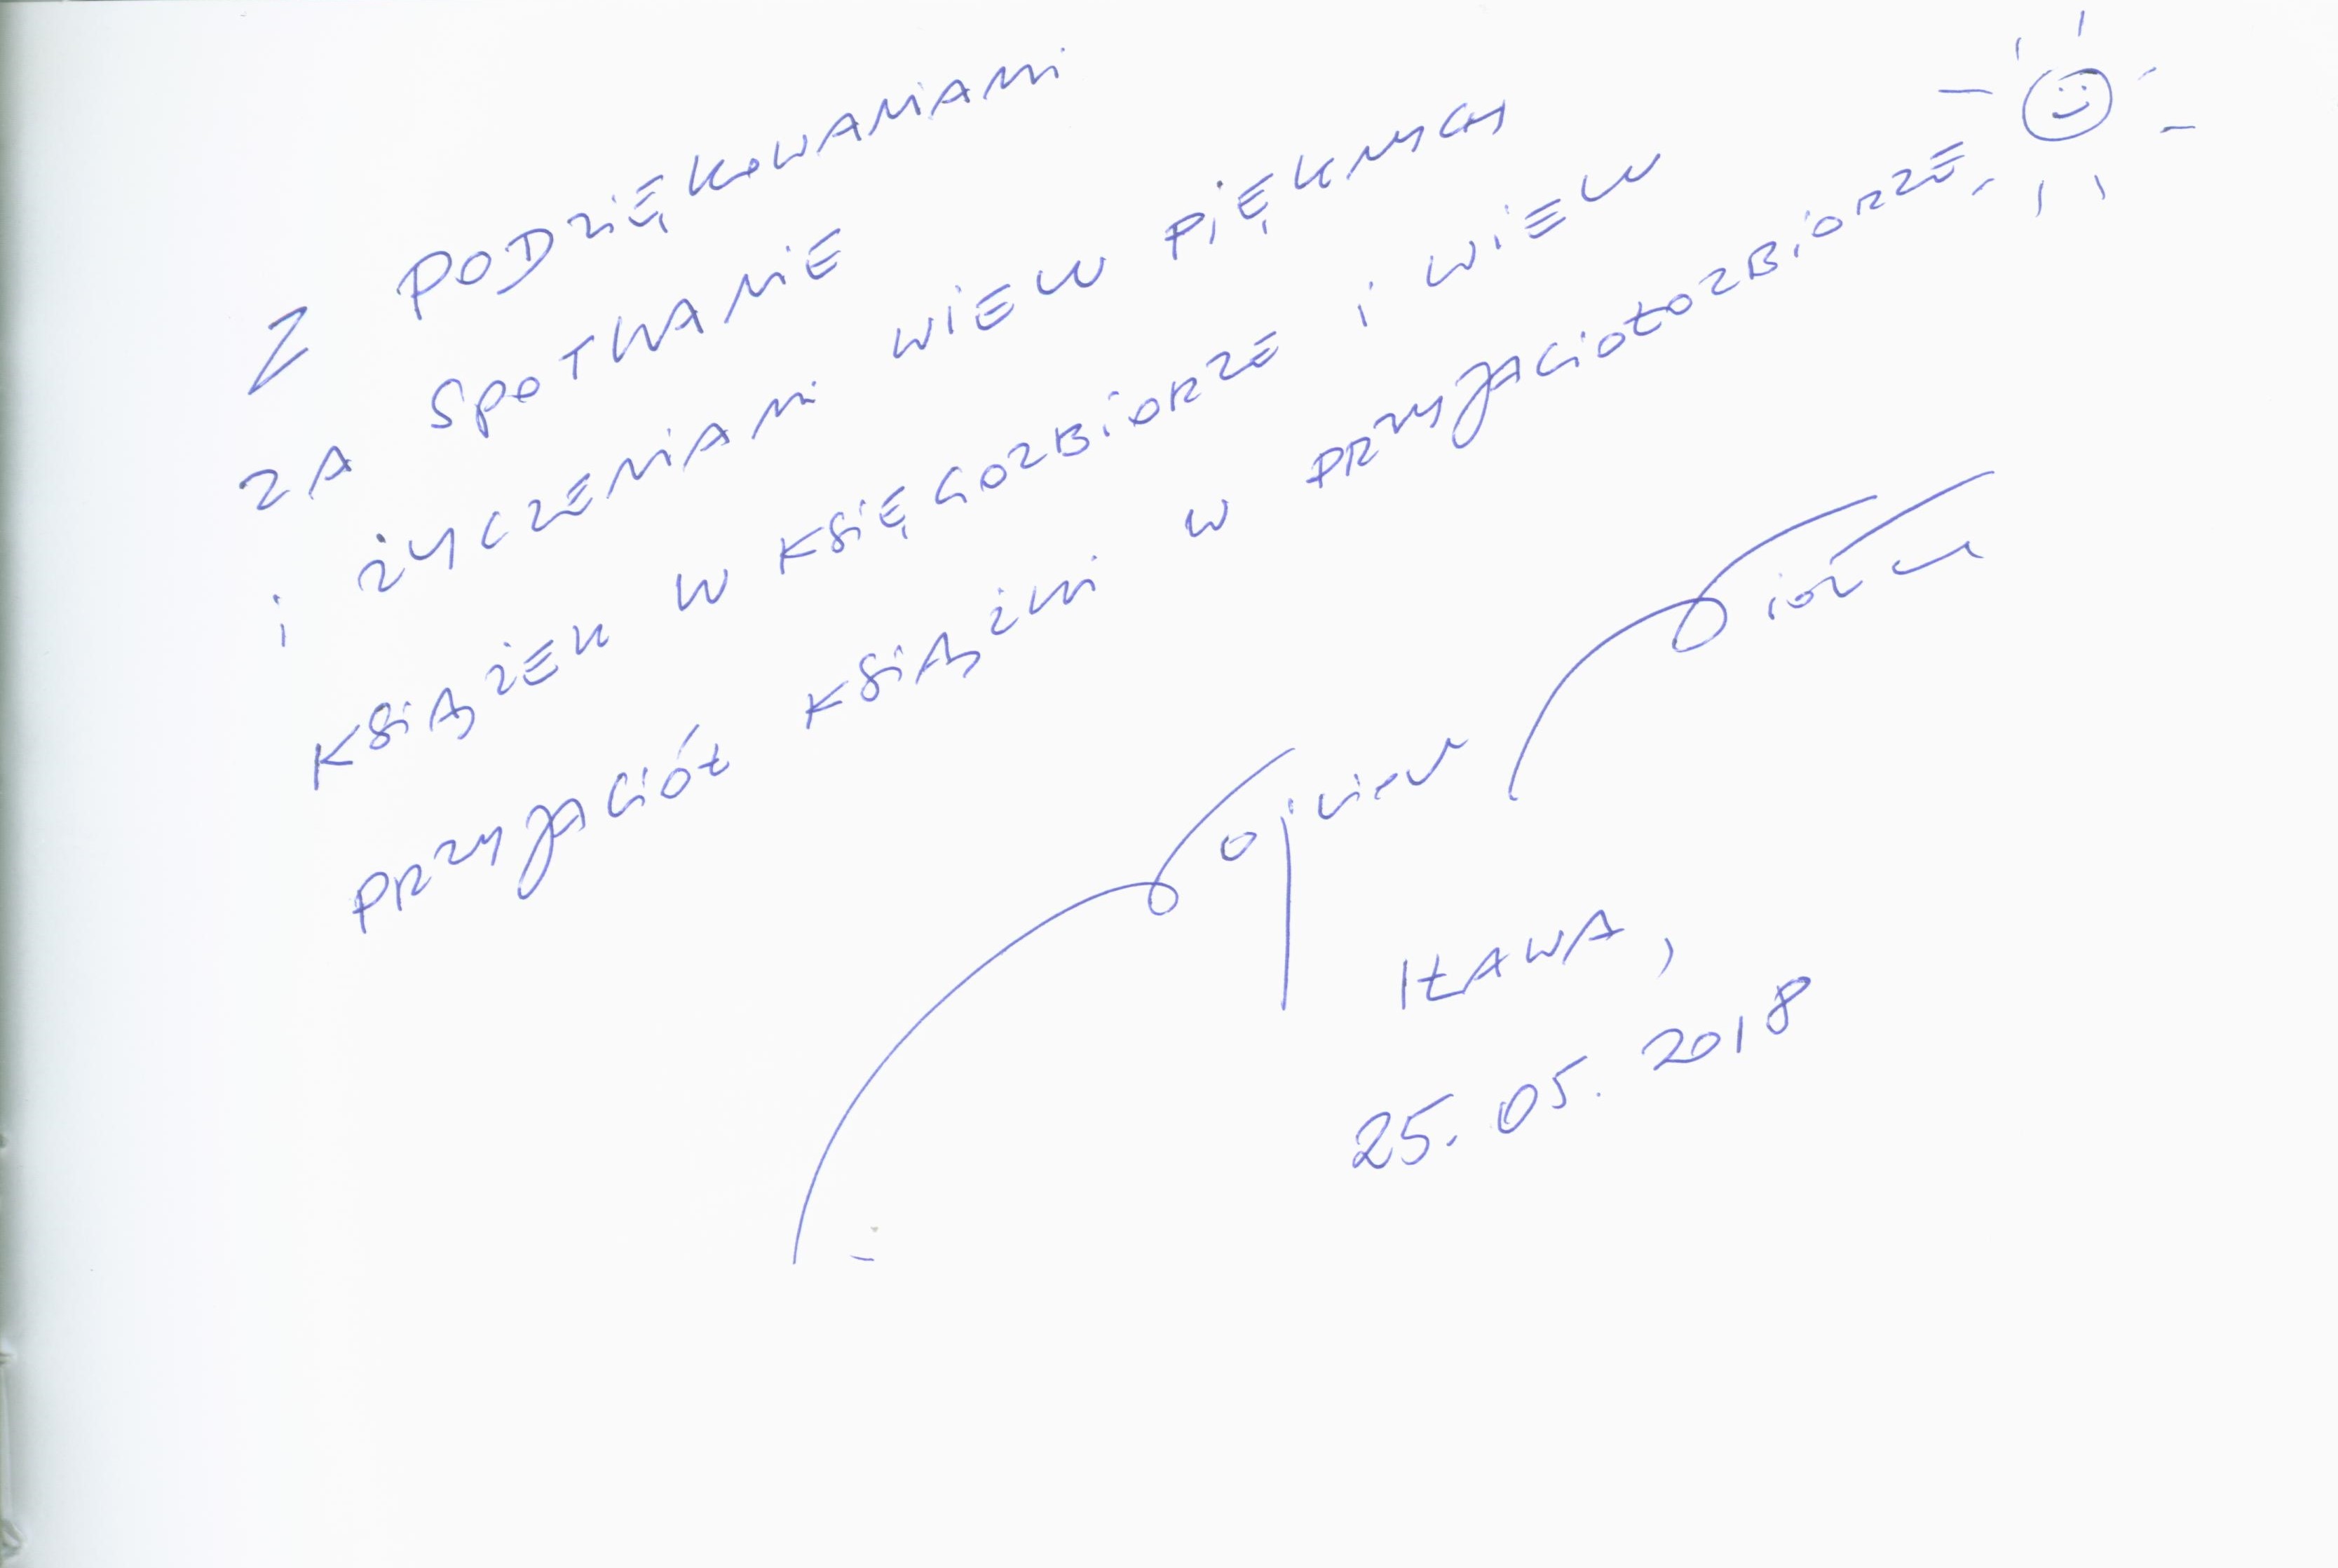 Z PODZIĘKOWANIAMI
ZA SPOTKANIE
i ŻYCZENIAMI WIELU PIĘKNYCH
KSIĄŻEK W KSIĘGOZBIORZE i WIELU
PRZYJACIÓŁ KSIĄŻKI W PRZYJACIOŁOZBIORZE
IŁAWA,
25.05.2018